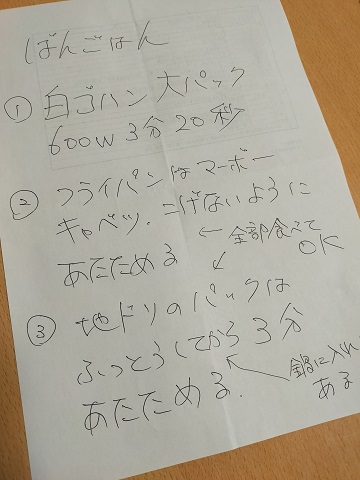 ばんごはん
① 白ゴハン 大パック
600W 3分20秒
② フライパンはマーボー
キャベツ. こげないように
あたためる
← 全部食べて
OK
③ 地ドリのパックは
ふっとうしてから 3分
あたためる.
鍋に入れ
ある